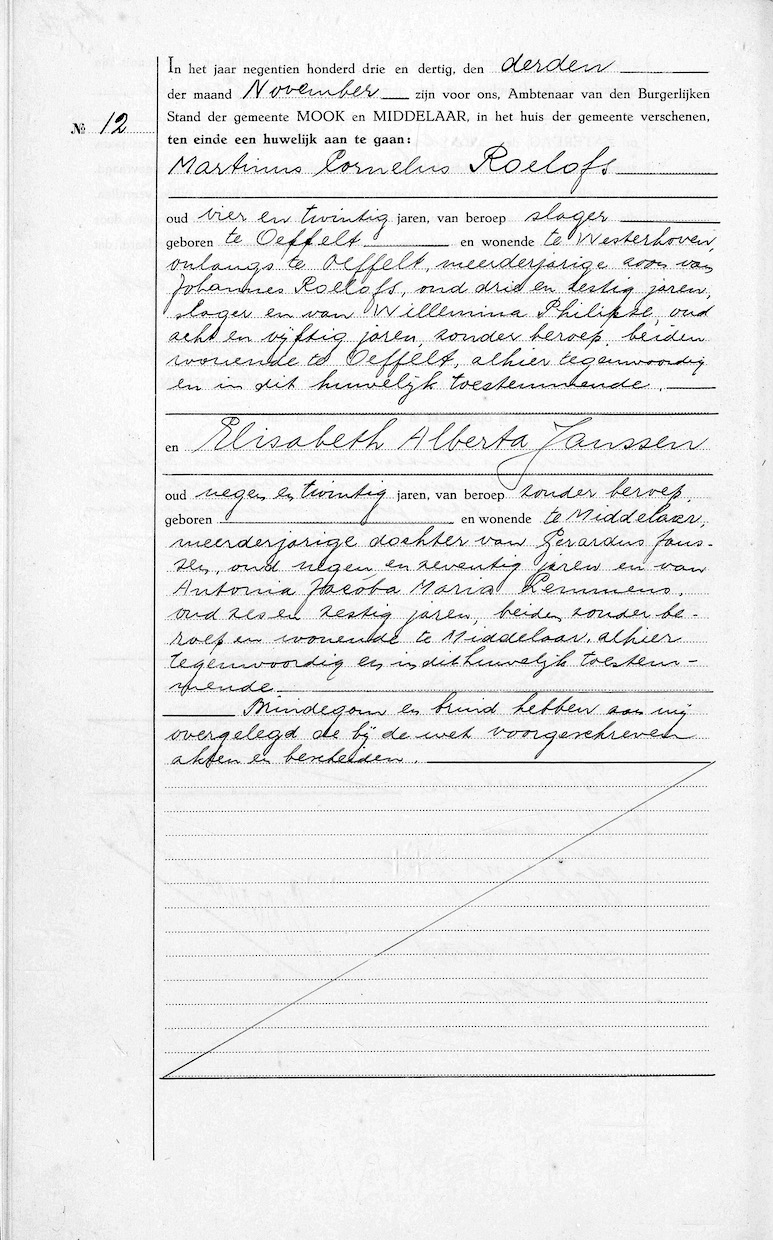 In het jaar negentien honderd drie en dertig, den derden
der maand November zijn voor ons, Ambtenaar van den Burgerlijken
Stand der gemeente MOOK en MIDDELAAR, in het huis der gemeente verschenen,
№ 12
ten einde een huwelijk aan te gaan:
Martinus Cornelus Roelofs
oud vier en twintig jaren, van beroep slager
geboren te Oeffelt en wonende te Westerhoven,
onlangs te Oeffelt, meerderjarige zoon van
Johannes Roelofs, oud drie en zestig jaren,
slager en van Willemina Philipse, oud
acht en vijftig jaren, zonder beroep, beiden
wonende te Oeffelt, alhier tegenwoordig
en in dit huwelijk toestemmende.
en Elisabeth Alberta Janssen
oud negen en twintig jaren, van beroep zonder beroep,
geboren en wonende te Middelaar,
meerderjarige dochter van Gerardus Jans-
sen, oud negen en zeventig jaren en van
Antonia Jacoba Maria Lemmens,
oud zes en zestig jaren, beiden zonder be-
roep en wonende te Middelaar, alhier
tegenwoordig en in dit huwelijk toestem-
mende.
Bruidegom en bruid hebben aan mij
overgelegd de bij de wet voorgeschreven
akten en bescheiden.